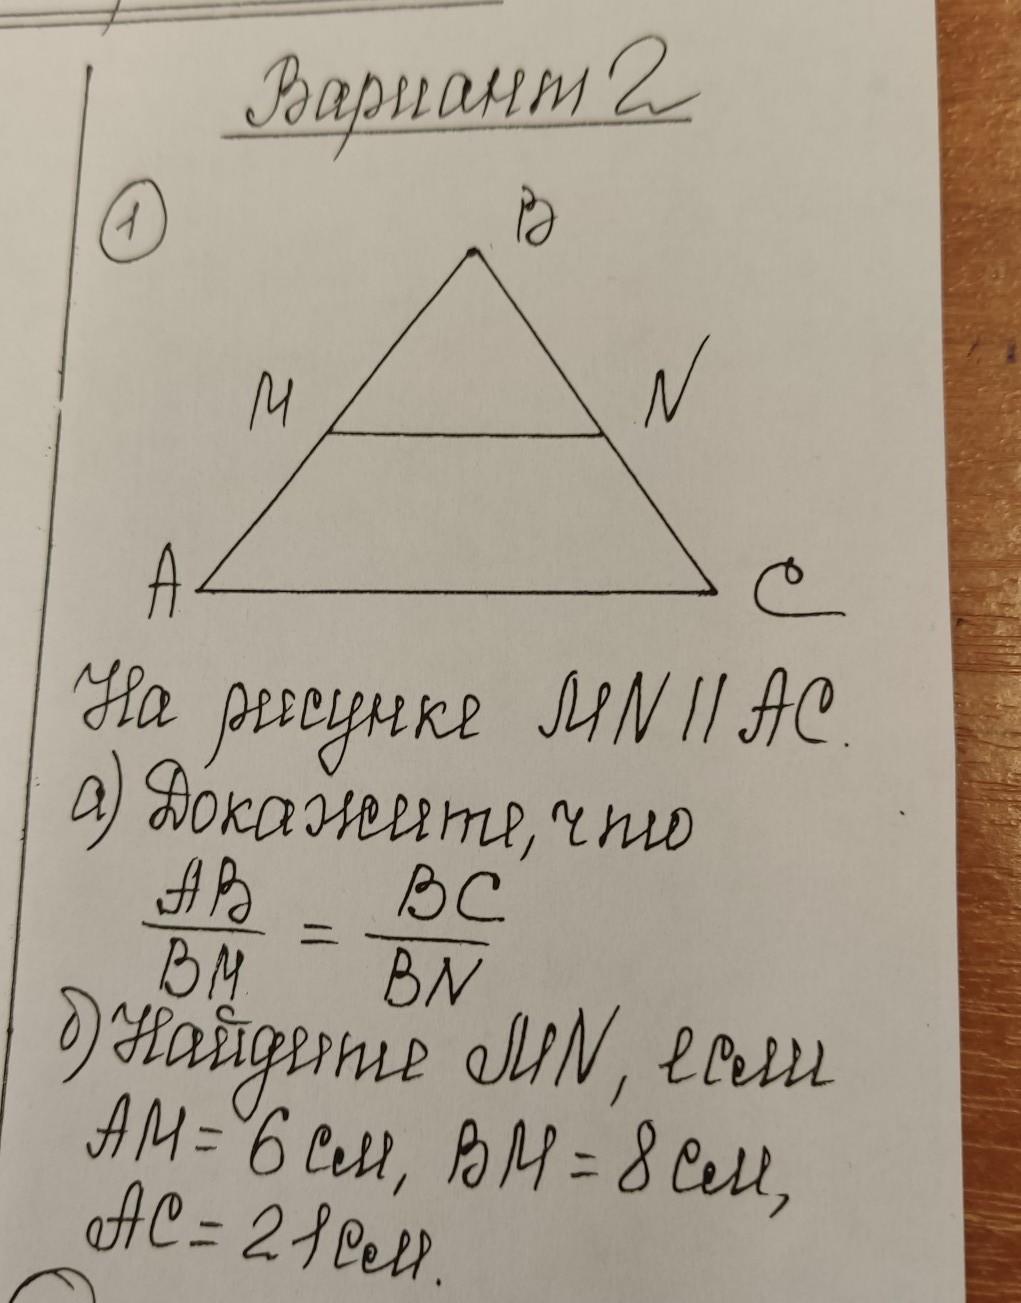 Вариант 2
1
B
M
N
A
C
На рисунке MN || AC.
а) Докажите, что
AB/BM = BC/BN
б) Найдите MN, если
AM = 6 см, BM = 8 см,
AC = 21 см.